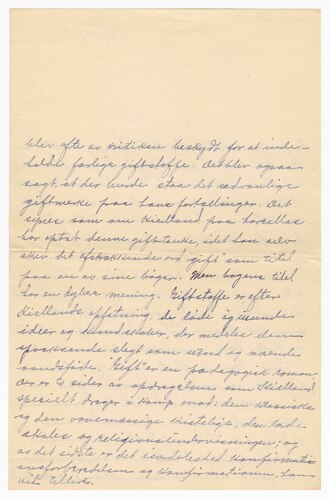 blev ofte av kritiken beskyldt for at inde-
holde farlige giftstoffe. Det blev ogsaa
sagt, at der burde staa det sedvanlige
giftmerke paa hans fortællinger. Det
synes som om Kielland paa
har optat denne gifttanke, idet han selv
skrev det afskrækkende ord gift som titel
paa en av sine bøger. Men bogens titel
har en dybere mening. Giftstoffe er efter
Kiellands opfatning de døde og usunde
ideer og kundskaber, der meddeles den
opvoksende slegt som sund og nærende
aandsføde. "Gift" er en pædagogisk roman.
Der er to sider av opdragelsen som Kielland
spesielt drager i kamp mod: den klassiske
og den vanemæssige kristelige, den
skoles og religionsundervisningen; og
av det sidste er det isærdeleshed konfirmati-
onsforberedelsen og konfirmationen, han
vil tillivs.